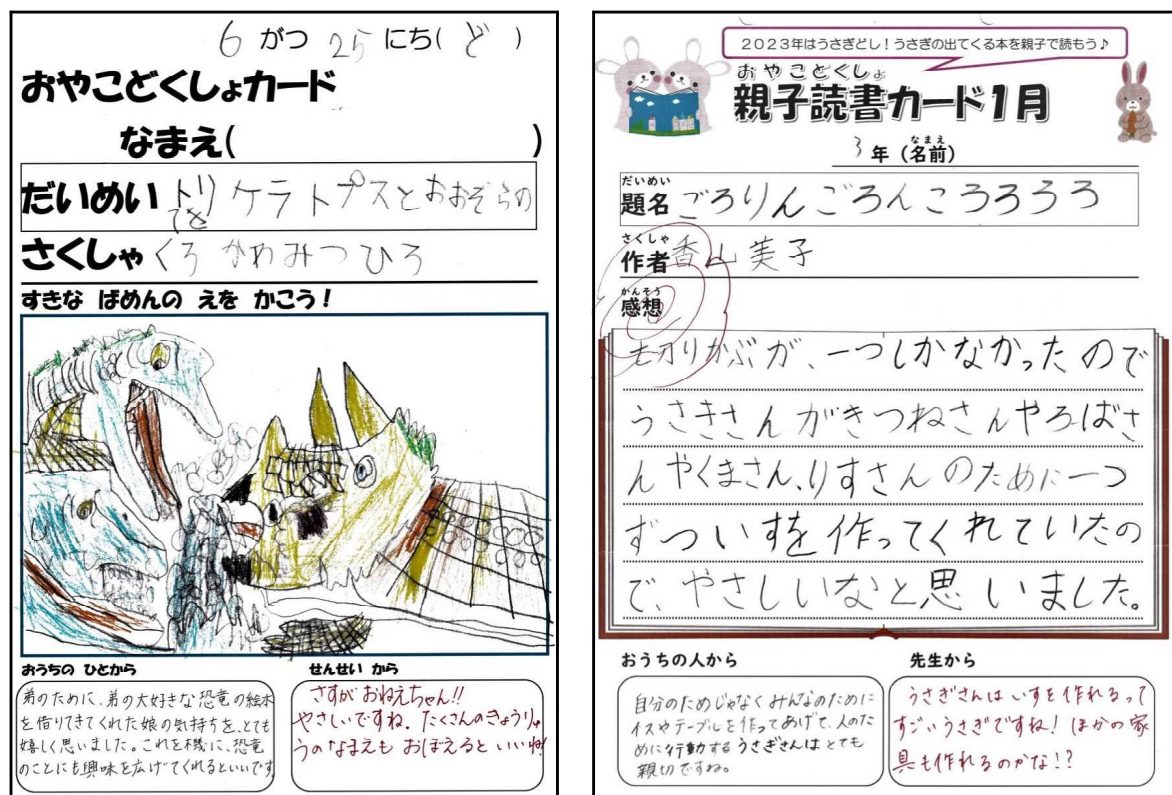 6 がつ 25 にち( ど )
おやこどくしょカード
なまえ( )
だいめい トリケラトプスとおおぞらの
てき
さくしゃ くろかわみつひろ
すきな ばめんの えを かこう！
おうちの ひとから
弟のために、弟の大好きな恐竜の絵本
を借りてきてくれた娘の気持ちを、とても
嬉しく思いました。これを機に、恐竜
のことにも興味を広げてくれるといいです
せんせい から
さすが おねえちゃん!!
やさしいですね。たくさんのきょうりゅ
うのなまえも おぼえると いいね!
2023年はうさぎどし！うさぎの出てくる本を親子で読もう♪
おやこどくしょ
親子読書カード1月
3年（名前）
なまえ
だいめい
題名 ごろりんごろんころろろろ
さくしゃ
作者 香山美子
かんそう
感想
もりかぶが、一つしかなかったので
うさきさんがきつねさんやろばさ
んやくまさん、りすさんのために一つ
ずついすを作ってくれていたの
で、やさしいなと思いました。
おうちの人から
自分のためじゃなくみんなのために
イスやテーブルを作ってあげて、人のた
めに行動するうさぎさんはとても
親切ですね。
先生から
うさぎさんはいすを作れるって
すごいうさぎですね！ほかの家
具も作れるのかな!?